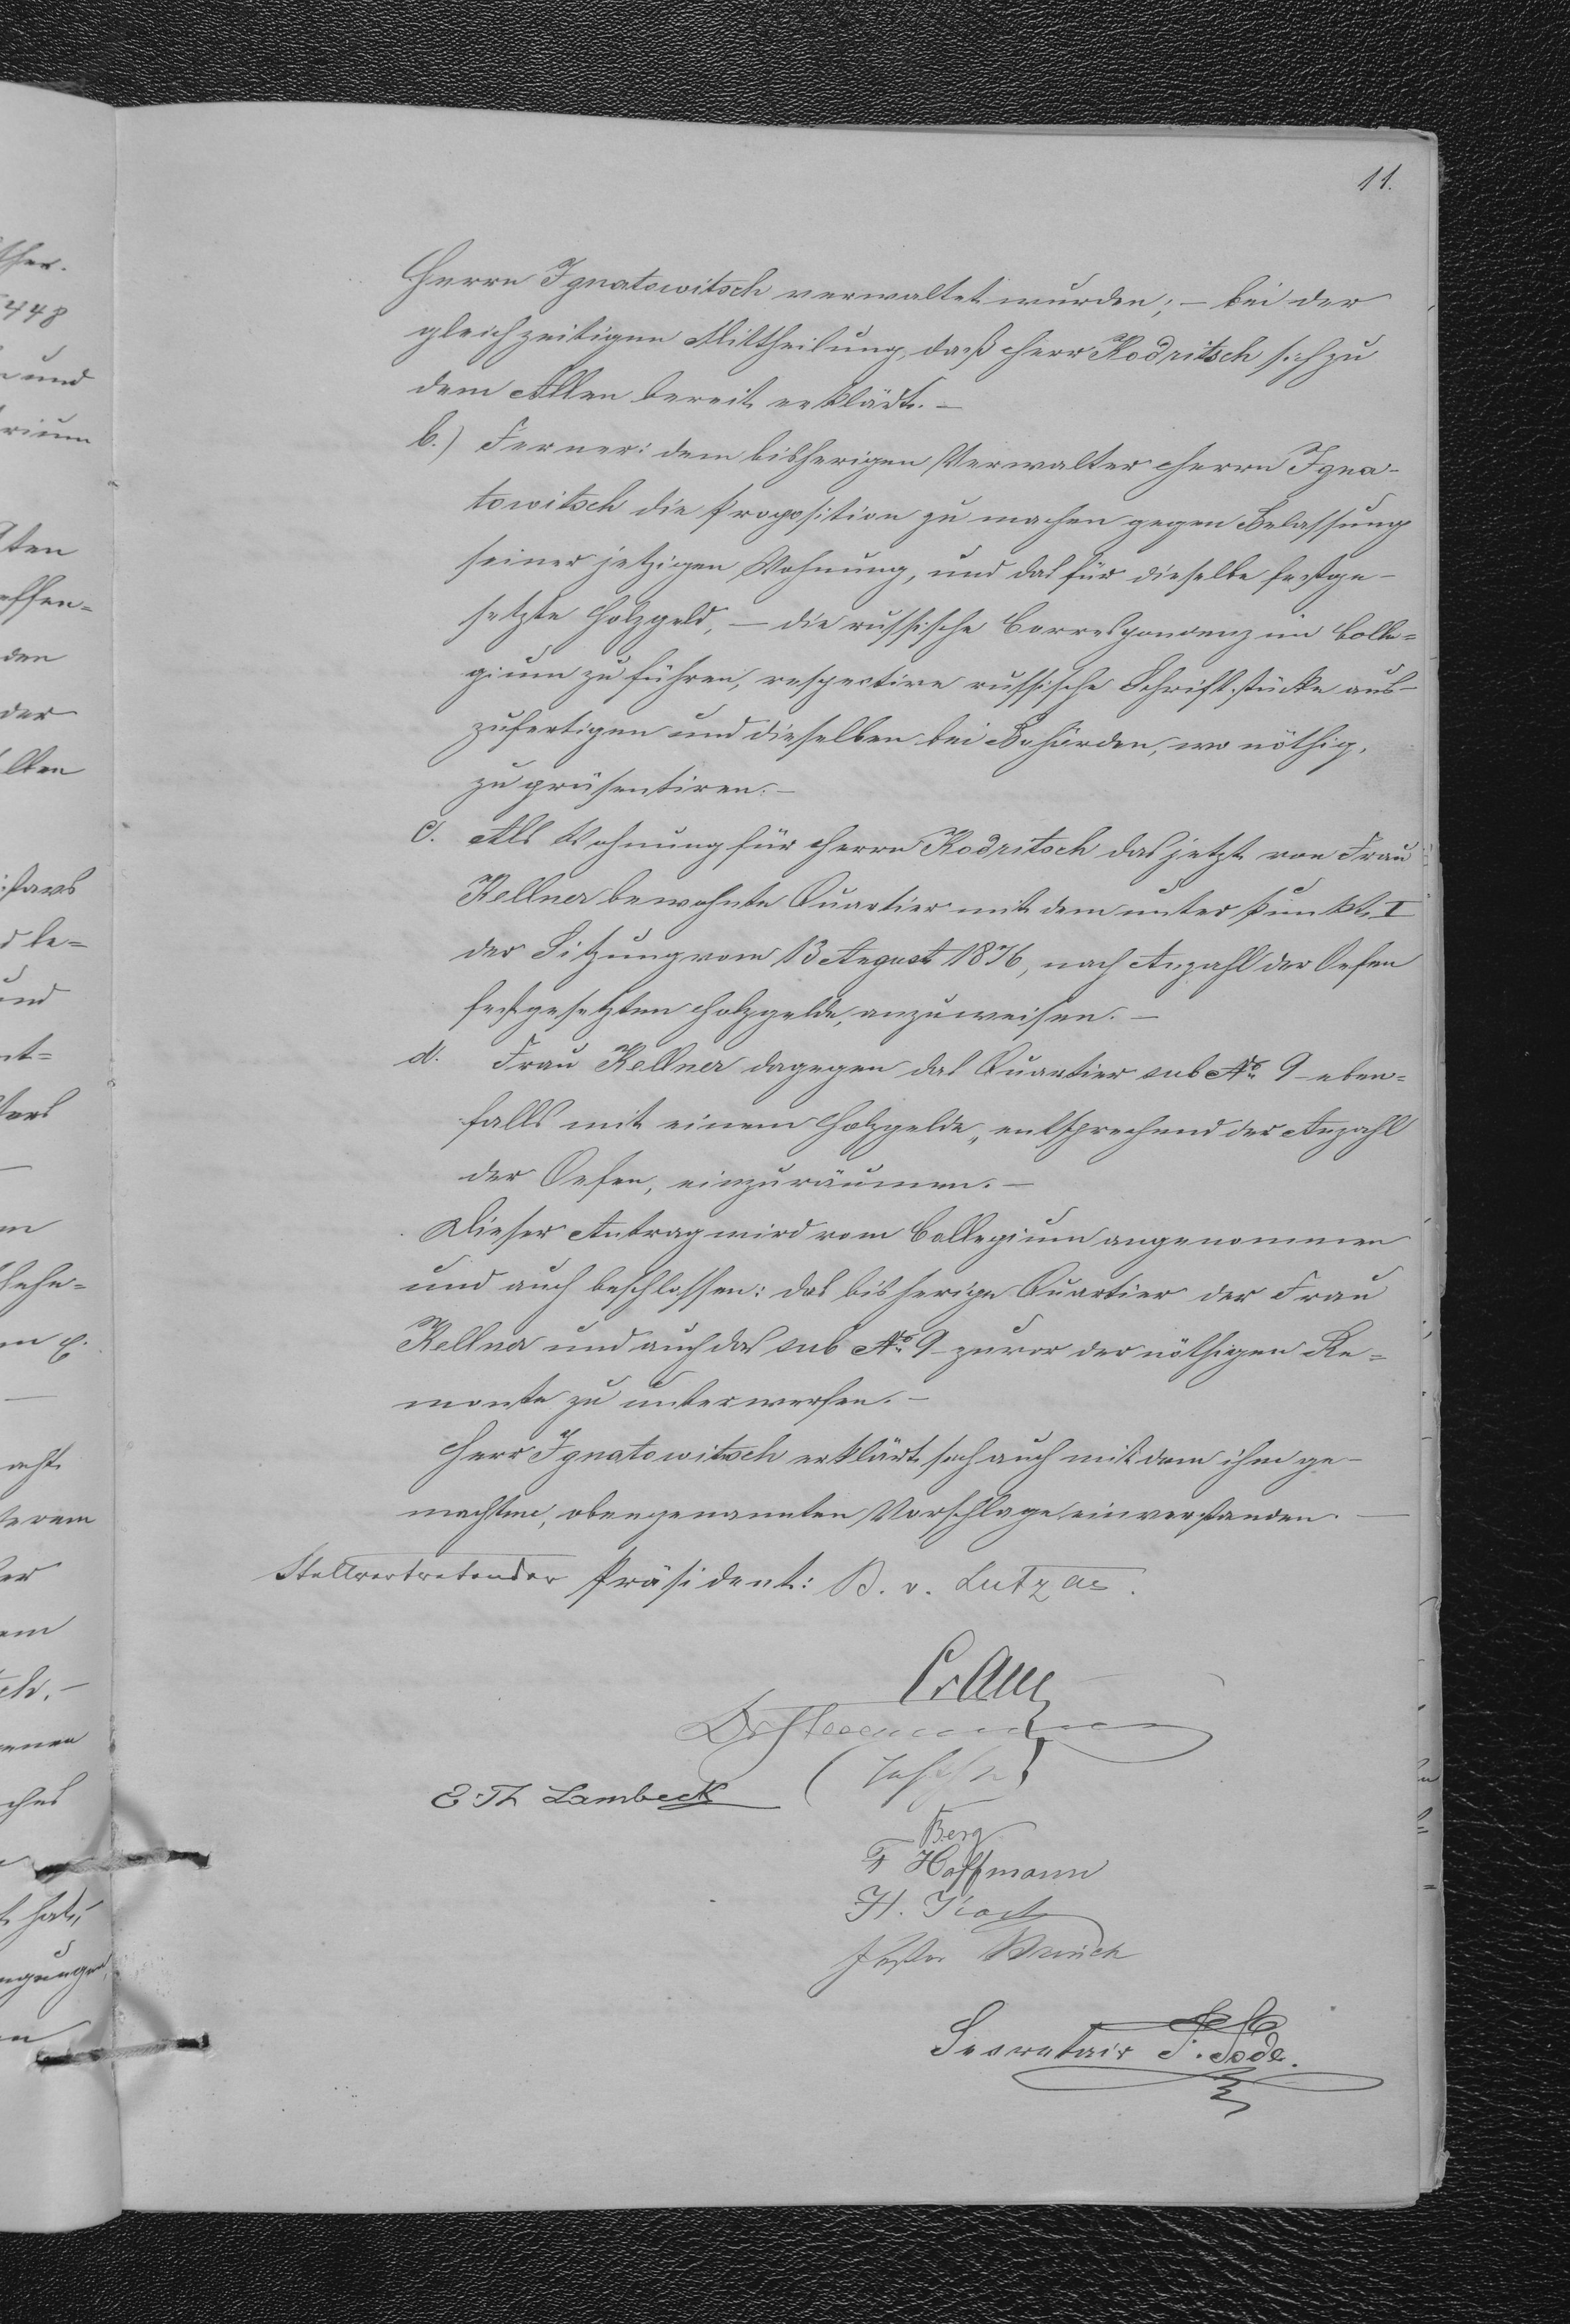 11.
Herrn Ignatowitsch verwaltet wurden; – bei der
gleichzeitigen Mittheilung, daß Herr Kodritsch sich zu
dem Allen bereit erklärt. –
b.) Ferner: dem bisherigen Verwalter Herrn Igna-
towitsch die Proposition zu machen gegen Belassung
seiner jetzigen Wohnung, und das für dieselbe festge-
setzte Holzgeld, – die russische Correspondenz im Colle=
gium zu führen, respective russische Schriftstücke aus-
zufertigen und dieselben bei Behörden, wo nöthig,
zu präsentiren. –
c. Als Wohnung für Herrn Kodritsch das jetzt von Frau
Kellner bewohnte Quartier mit dem unter Punkt I
der Sitzung vom 13 August 1876, nach Anzahl der Oefen
festgesetzten Holzgelde, anzuweisen. –
d. Frau Kellner dagegen das Quartier sub No 9 – eben=
falls mit einem Holzgelde, entsprechend der Anzahl
der Oefen, einzuräumen. –
Dieser Antrag wird vom Collegium angenommen
und auch beschlossen: das bisherige Quartier der Frau
Kellner und auch das sub No 9 – zuvor der nöthigen Re=
monte zu unterwerfen. –
Herr Ignatowitsch erklärt sich auch mit dem ihm ge-
machten, obengenannten Vorschlage einverstanden. –
Stellvertretender Präsident: B. v. Lutzau.
E. Th Lambeck
Berg
F Hoffmann
H.
Pastor
Secretair T. Tode.
448
und
rium
ten
offen=
den
der
be=
und